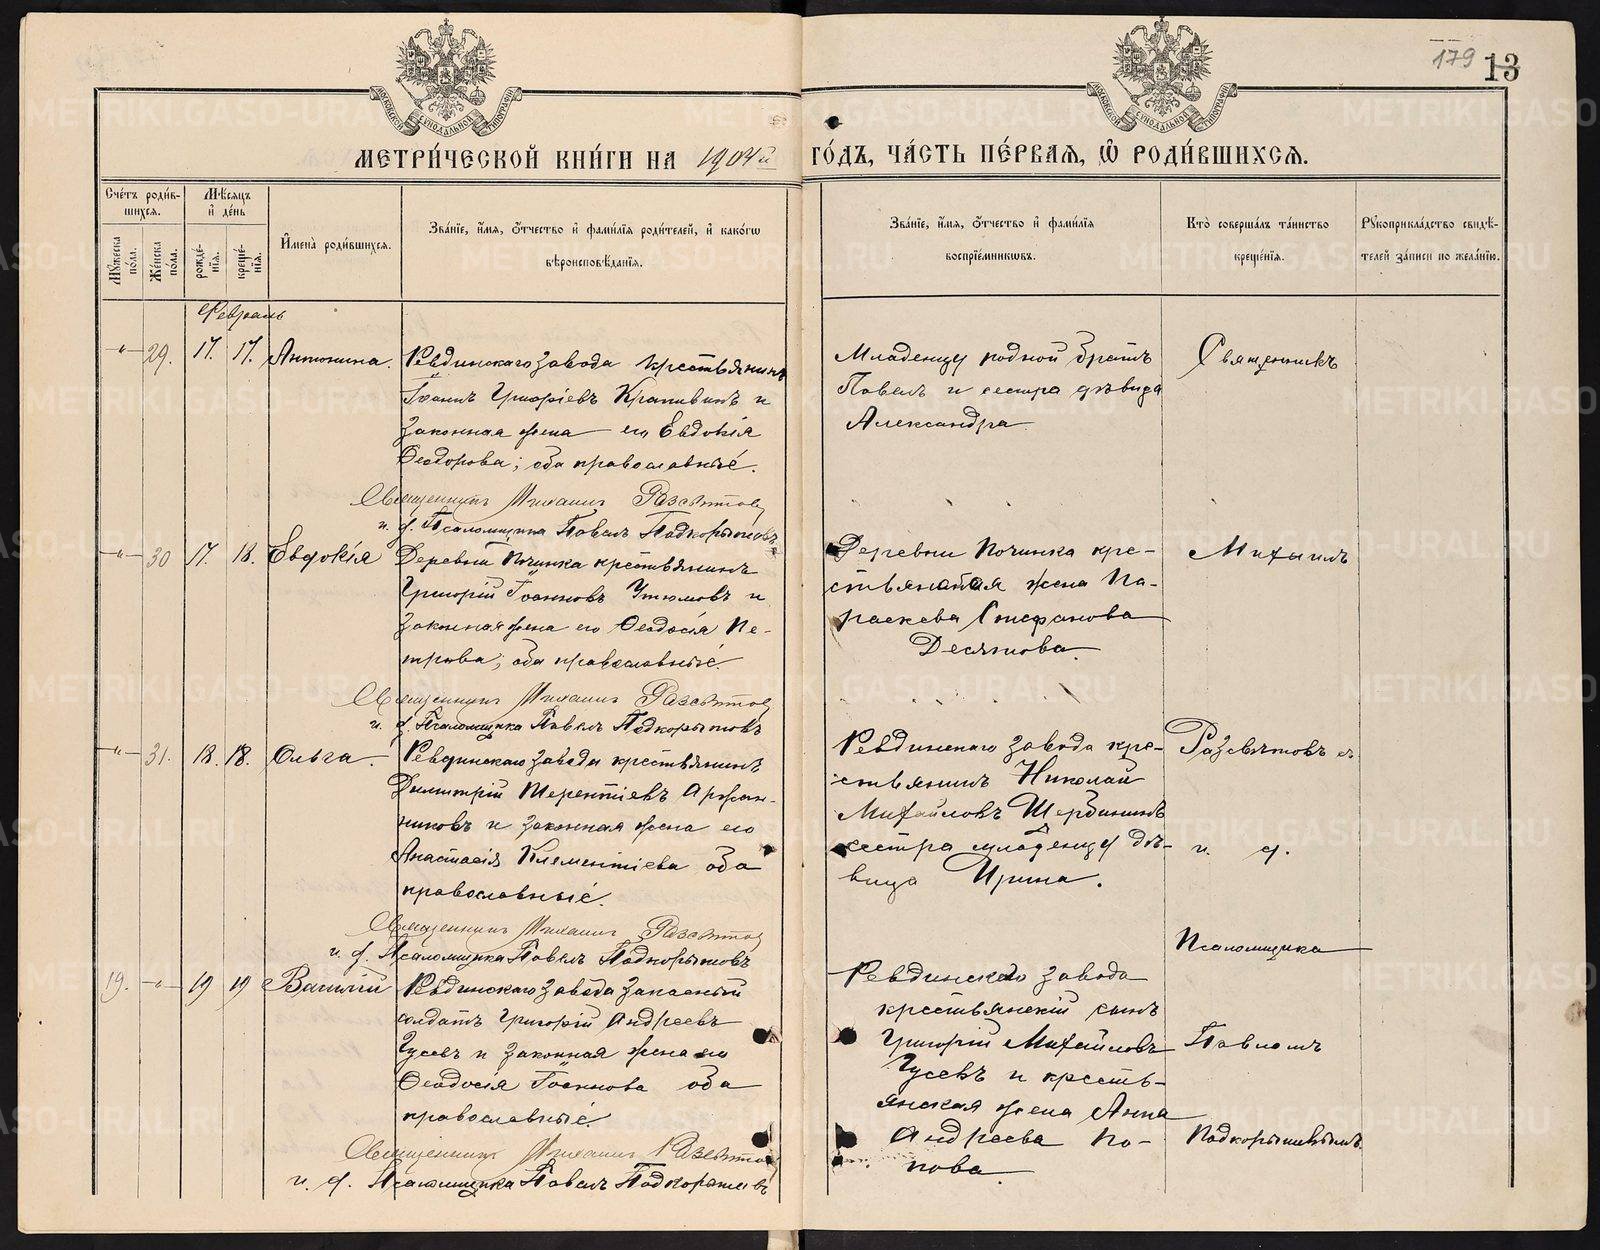 179 13
МОСКОВСКОЙ СѴНОДАЛЬНОЙ ТИПОГРАФІИ
МОСКОВСКОЙ СѴНОДАЛЬНОЙ ТИПОГРАФІИ
МЕТРИ́ЧЕСКОЙ КНИ́ГИ НА 1904й ГО́ДЪ, ЧА́СТЬ ПЕ́РВАЯ, Ѡ РОДИ́ВШИХСЯ.
Сче́тъ роди́вшихся.
Мѣсяцъ и де́нь
Мꙋ́жеска по́ла.
Же́нска по́ла.
рожде́нїя.
креще́нїя.
И́мена̀ роди́вшихся.
Зва́нїе, и́мя, о́тчество и фами́лїя роди́телей, и како́гѡ
вѣроисповѣ́данїя.
Зва́нїе, и́мя, о́тчество и фами́лїя
воспрїе́мникѡвъ.
Кто̀ соверша́лъ та́инство
креще́нїя.
Рꙋкоприкла́дство свидѣ́-
телей за́писи по жела́нїю.
Февраль
-"- 29. 17. 17. Антонина.
Ревдинскаго завода крестьянинъ
Іоаннъ Григоріевъ Крапивинъ и
законная жена его Евдокія
Ѳеодорова; оба православные.
Священникъ Михаилъ Разсвѣтовъ
и. д. Псаломщика Павелъ Подкорытовъ
Младенцу родной братъ
Павелъ и сестра дѣвица
Александра
Священникъ
-"- 30 17. 18. Евдокія
Деревни Починка крестьянинъ
Григорій Іоанновъ Утюмовъ и
законная жена его Ѳеодосія Пе-
трова; оба православные.
Священникъ Михаилъ Разсвѣтовъ
и. д. Псаломщика Павелъ Подкорытовъ
Деревни Починка кре-
стьянская жена Па-
раскева Стефанова
Десятова.
Михаилъ
-"- 31. 18. 18. Ольга.
Ревдинскаго завода крестьянинъ
Димитрій Терентіевъ
законная жена его
Анастасія Климентіева оба
православные.
Священникъ Михаилъ Разсвѣтовъ
и. д. Псаломщика Павелъ Подкорытовъ
Ревдинскаго завода кре-
стьянинъ Николай
Михайловъ Щербининъ
сестра младенцу дѣ-
вица Ирина.
Разсвѣтовъ съ
и. д.
Псаломщика
19. -"- 19 19 Василій
Ревдинскаго завода запасный
солдатъ Григорій Андреевъ
Гусевъ и законная жена его
Ѳеодосія Іоаннова оба
православные.
Священникъ Михаилъ Разсвѣтовъ
и. д. Псаломщика Павелъ Подкорытовъ
Ревдинскаго завода
крестьянскій сынъ
Григорій Михайловъ
Гусевъ и кресть-
янская жена Анна
Андреева По-
пова.
Павломъ
Подкорытовымъ.
METRIKI.GASO-URAL.RU